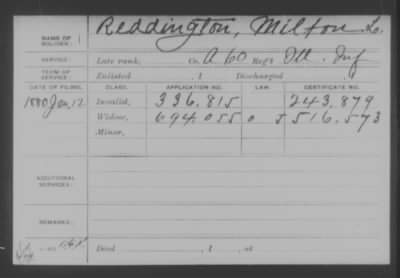 NAME OF SOLDIER: Reddington, Milton L.
SERVICE: Late rank, Co. A 60 Reg't Ill. Inf
TERM OF SERVICE: Enlisted , 1 Discharged , 1
DATE OF FILING. CLASS. APPLICATION NO. LAW. CERTIFICATE NO.
1880 Jan, 12 Invalid, 336.815 243.879
Widow, 694.055 0 J 516.573
Minor,
ADDITIONAL SERVICES:
REMARKS:
Died , 1 , at